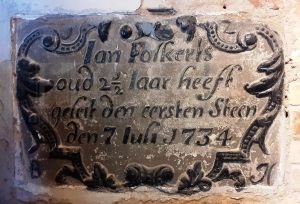 Jan Folkerts
oud 2½ Jaar heeft
geleit den eersten Steen
den 7 Juli 1734